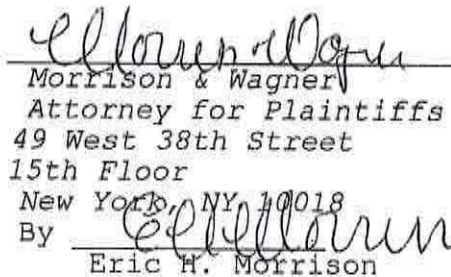 Morrison & Wagner
Attorney for Plaintiffs
49 West 38th Street
15th Floor
New York, NY 10018
By
Eric H. Morrison